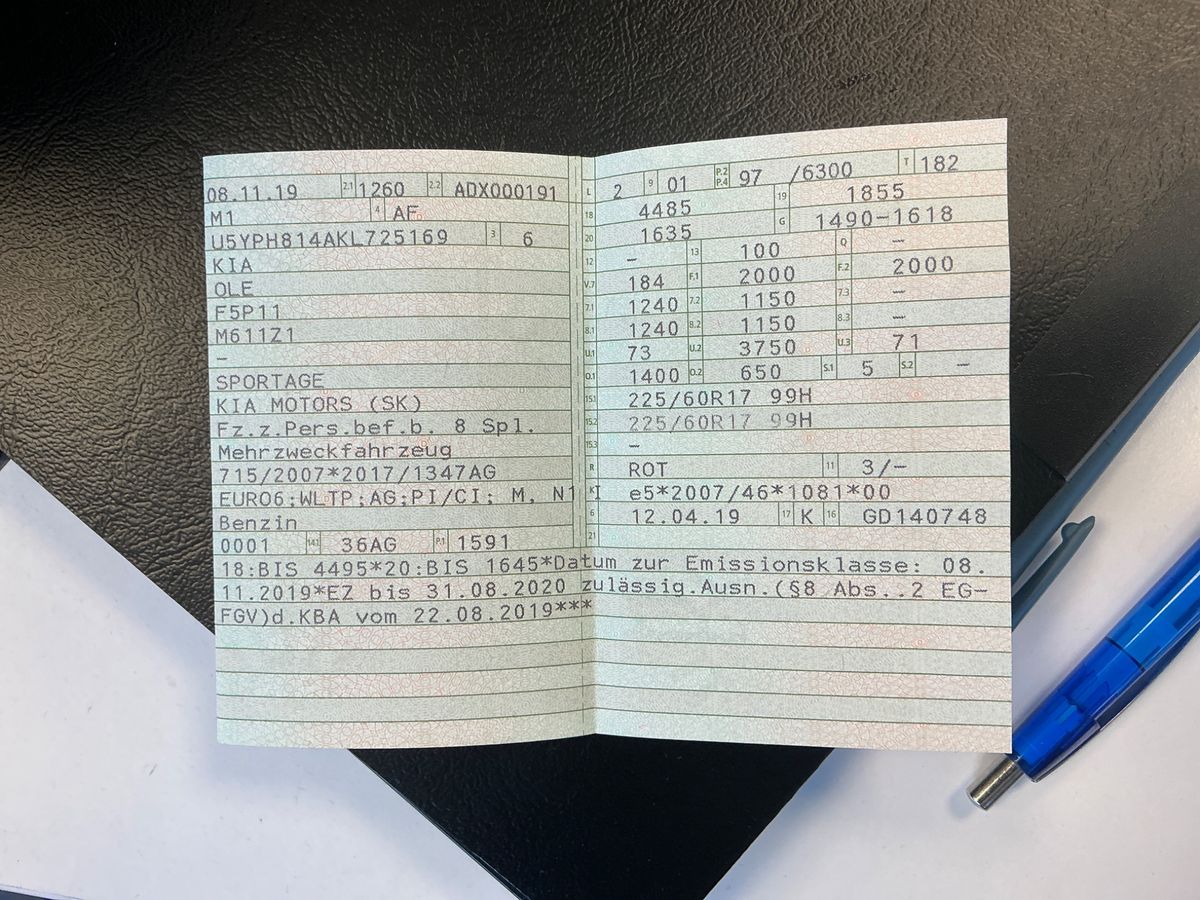 08.11.19 2.1 1260 2.2 ADX000191
M1 4 AF
U5YPH814AKL725169 3 6
KIA
OLE
F5P11
M611Z1
–
SPORTAGE
KIA MOTORS (SK)
Fz.z.Pers.bef.b. 8 Spl.
Mehrzweckfahrzeug
715/2007*2017/1347AG
EURO6;WLTP;AG;PI/CI; M, N1 I
Benzin
0001 14.1 36AG P.1 1591
L 2 9 01 P.2 P.4 97 /6300 T 182
18 4485 19 1855
20 1635 G 1490–1618
12 – 13 100 Q –
V.7 184 F.1 2000 F.2 2000
7.1 1240 7.2 1150 7.3 –
8.1 1240 8.2 1150 8.3 –
U.1 73 U.2 3750 U.3 71
O.1 1400 O.2 650 S.1 5 S.2 –
15.1 225/60R17 99H
15.2 225/60R17 99H
15.3 –
R ROT 11 3/–
K e5*2007/46*1081*00
6 12.04.19 17 K 16 GD140748
21
18:BIS 4495*20:BIS 1645*Datum zur Emissionsklasse: 08.
11.2019*EZ bis 31.08.2020 zulässig.Ausn.(§8 Abs..2 EG–
FGV)d.KBA vom 22.08.2019***